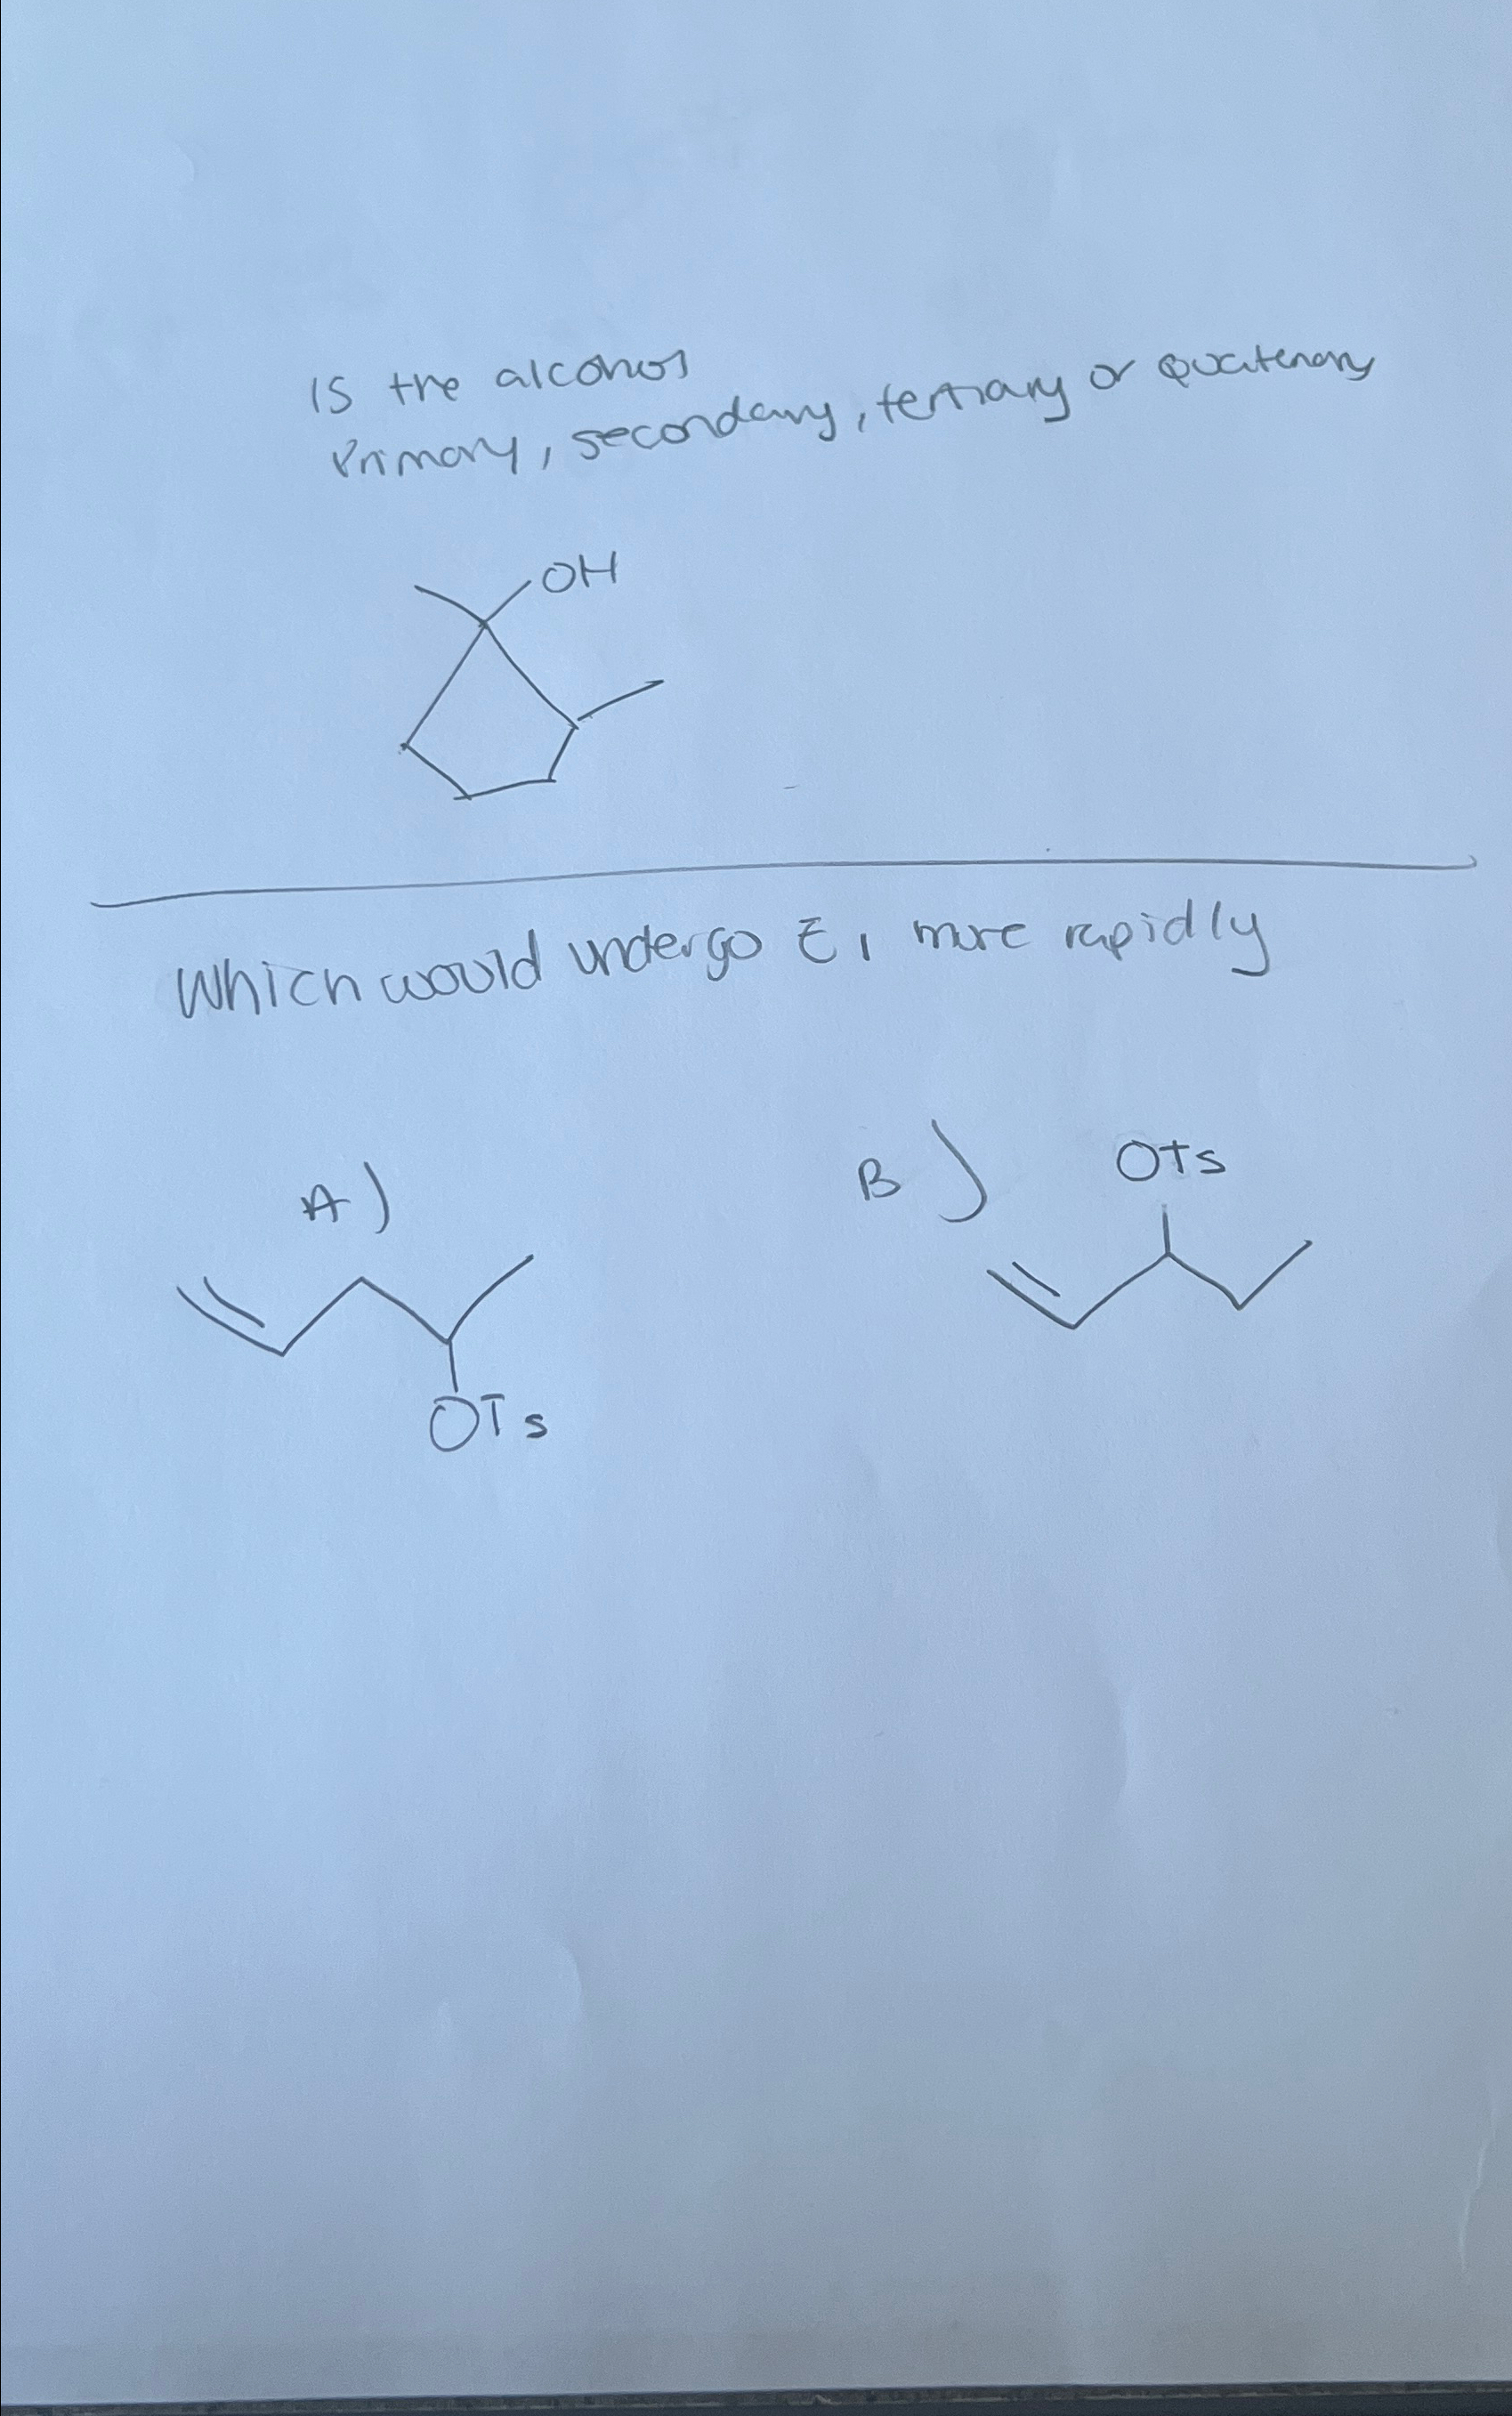 Is the alcohol
Primary, secondary, tertiary or quatenary
OH
Which would undergo E1 more rapidly
A)
B)
OTs
OTs